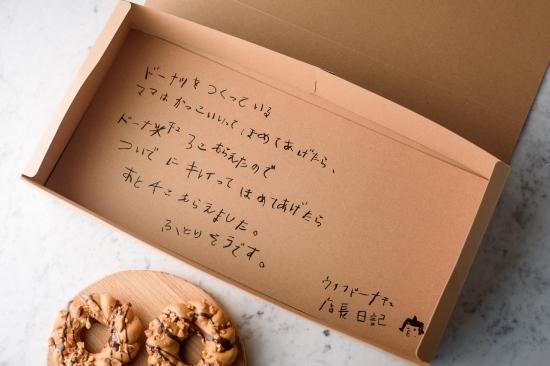 ドーナツをつくっている
ママはかっこいいって ほめてあげたら、
ドーナチュ 3こ もらえたので
ついでに キレイって ほめてあげたら
あと4こ もらえました。
ふとりそうです。
店長日記